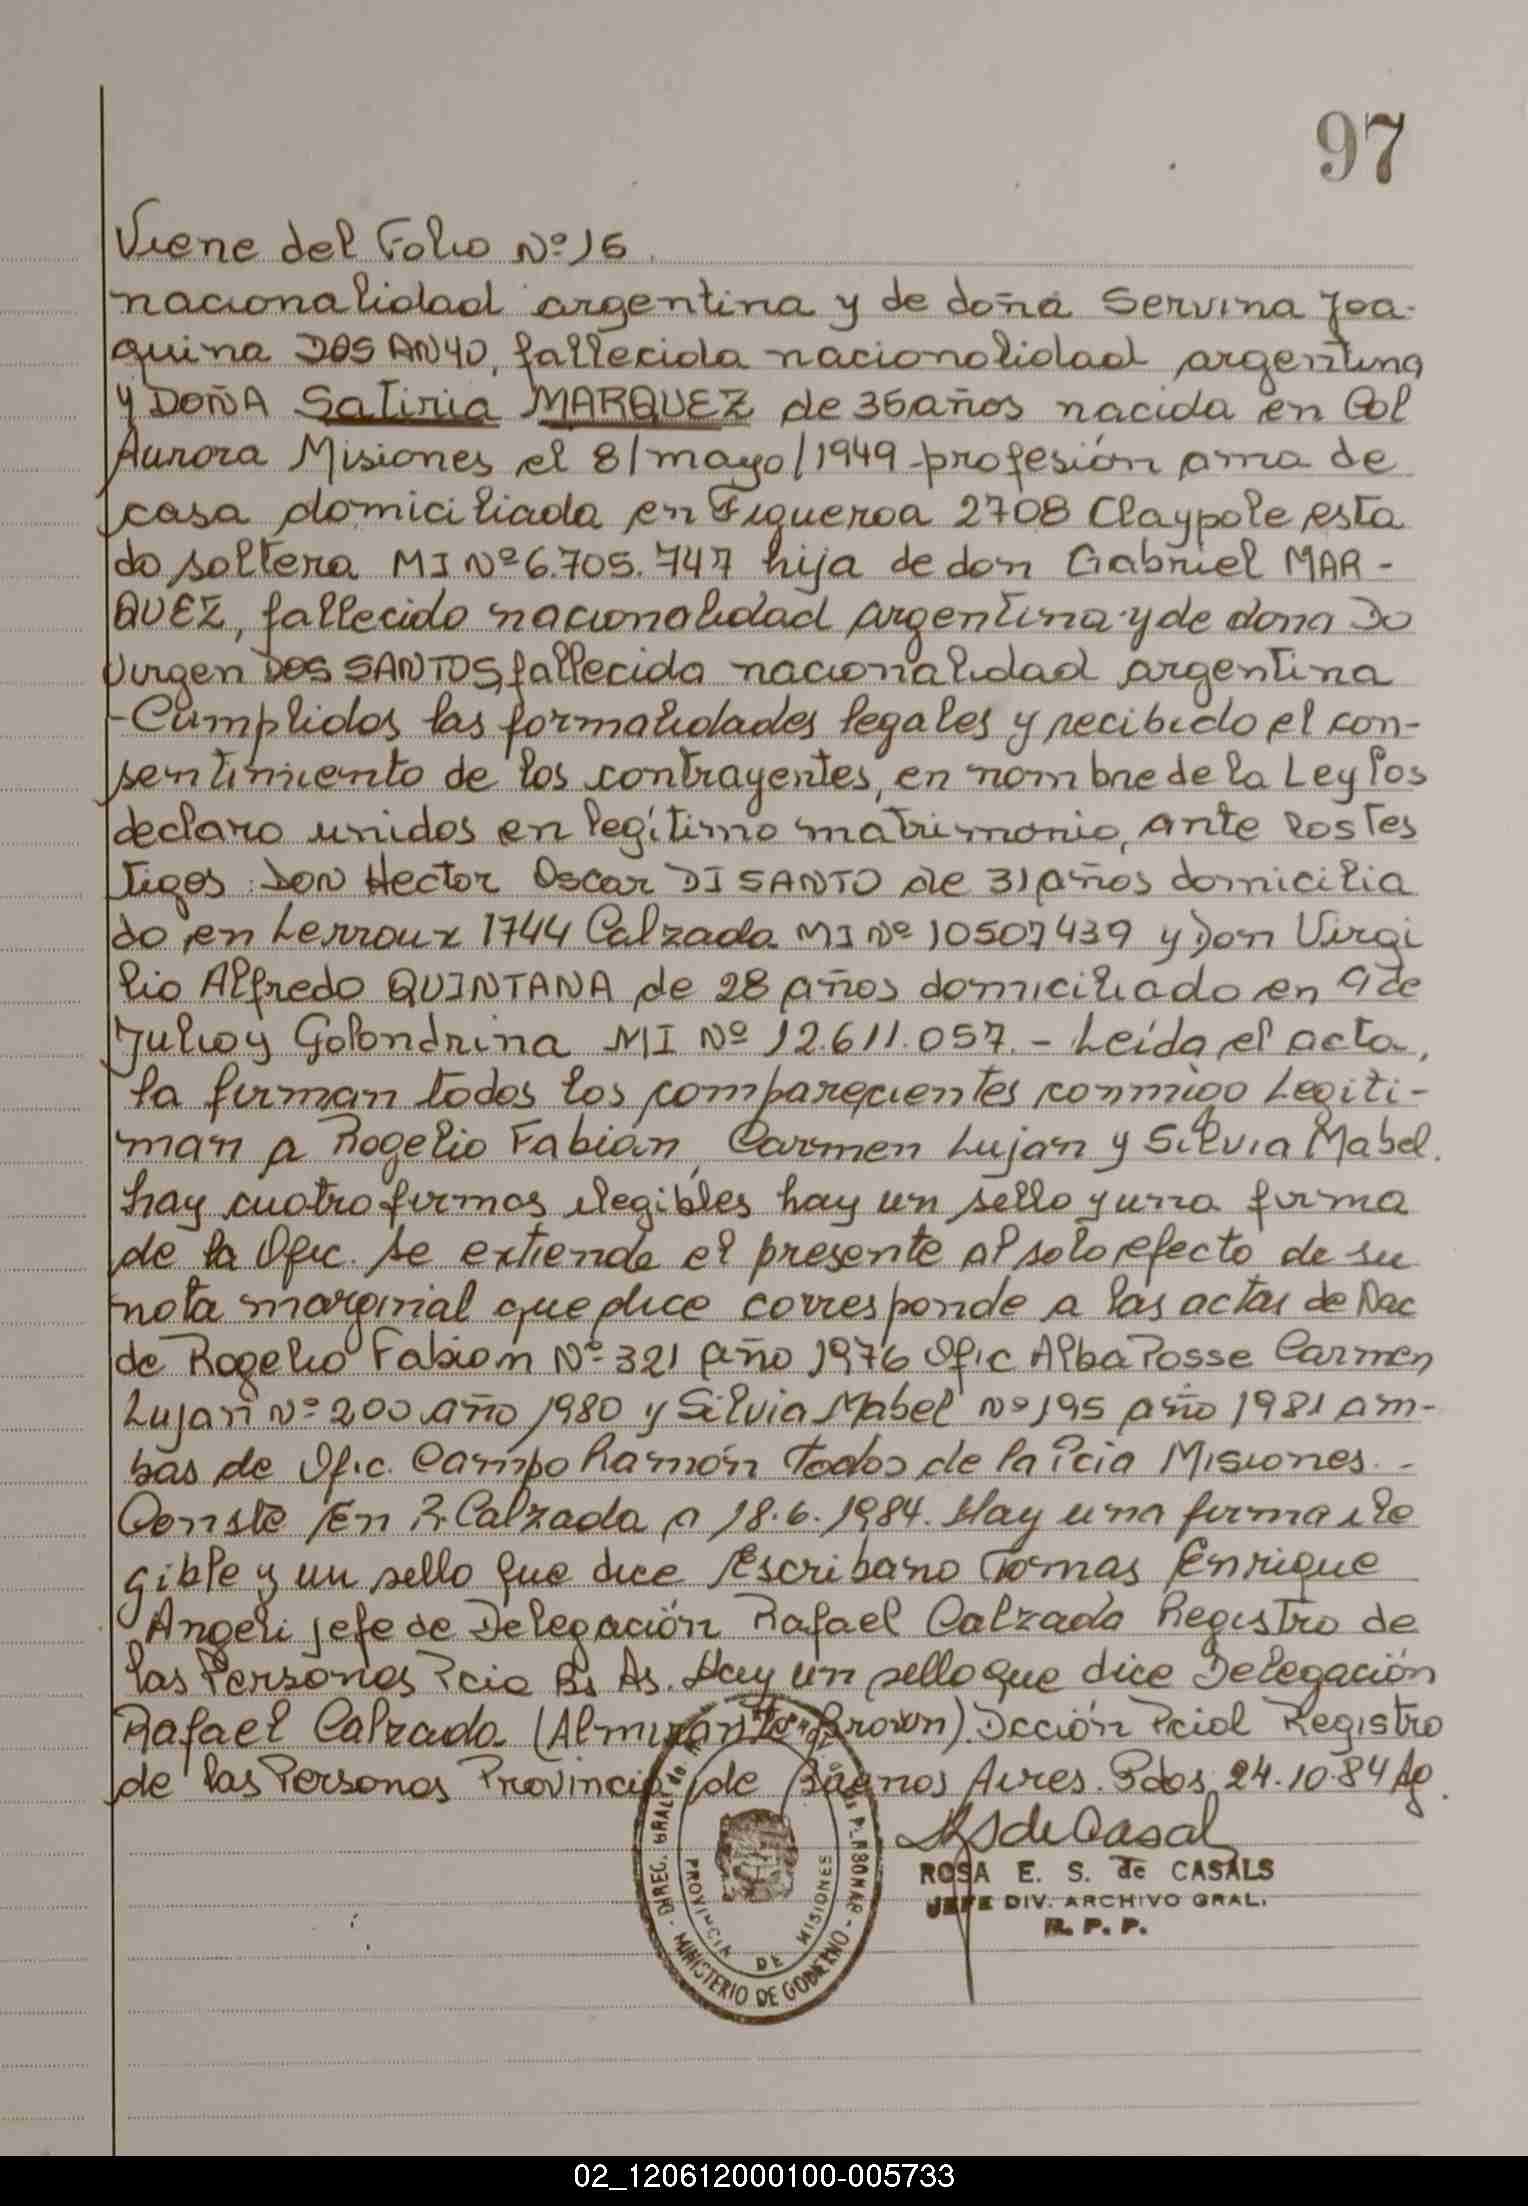 97
Viene del Folio Nº 16
nacionalidad argentina y de doña Servina Joa-
quina DOS ANYO, fallecida nacionalidad argentina
y DOÑA Satiria MARQUEZ de 35 años nacida en Col
Aurora Misiones el 8/mayo/1949 profesión ama de
casa domiciliada en Figueroa 2708 Claypole esta
do soltera MI Nº 6.705.747 hija de don Gabriel MAR-
QUEZ, fallecido nacionalidad argentina y de dona Do
Virgen DOS SANTOS, fallecida nacionalidad argentina
- Cumplidos las formalidades legales y recibido el con-
sentimiento de los contrayentes, en nombre de la Ley los
declaro unidos en legítimo matrimonio, ante los tes
tigos: DON Hector Oscar DI SANTO de 31 años domicilia
do en Lerroux 1744 Calzada MI Nº 10507439 y Don Virgi
lio Alfredo QUINTANA de 28 años domiciliado en 9 de
Julio y Golondrina MI Nº 12.611.057.- Leída el acta,
la firman todos los comparecientes conmigo Legiti-
man a Rogelio Fabián, Carmen Lujan y Silvia Mabel.
hay cuatro firmas ilegibles hay un sello y una firma
de la Ofic. se extiende el presente al solo efecto de su
nota marginal que dice corresponde a las actas de Nac
de Rogelio Fabian Nº 321 año 1976 Ofic Alba Posse Carmen
Lujan Nº 200 año 1980 y Silvia Mabel Nº 195 año 1981 am-
bas de Ofic. Campo Ramón todos de la Pcia Misiones.-
Conste En R. Calzada a 18.6.1984. Hay una firma ile
gible y un sello que dice Escribano Tomas Enrique
Angeli jefe de Delegación Rafael Calzada Registro de
las Personas Pcia Bs As. Hay un sello que dice Delegación
Rafael Calzada (Almirante Brown). Dcción Pcial Registro
de las Personas Provincia de Buenos Aires. Pdos, 24.10.84
RS de Casal
ROSA E. S. de CASALS
JEFE DIV. ARCHIVO GRAL.
R. P. P.
DIREC. GRAL. de
PROVINCIA DE MISIONES
MINISTERIO DE GOBIERNO
02_120612000100-005733